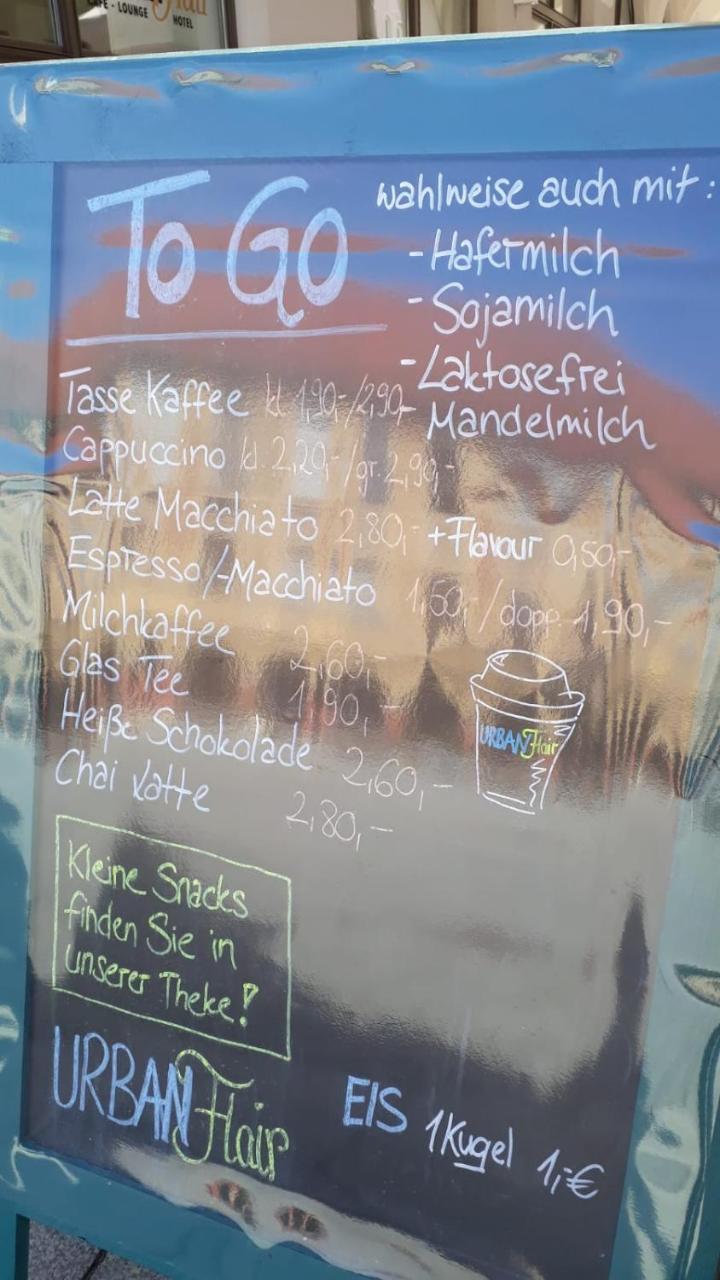 CAFE - LOUNGE
HOTEL
To Go
wahlweise auch mit:
- Hafermilch
- Sojamilch
- Laktosefrei
Mandelmilch
Tasse Kaffee kl. 1,90,-/2,90,-
Cappuccino kl. 2,20,-/gr. 2,90,-
Latte Macchiato 2,80,- +Flavour 0,50,-
Espresso/-Macchiato 1,50,-/dopp. 1,90,-
Milchkaffee 2,60,-
Glas Tee 1,90,-
Heiße Schokolade 2,60,-
Chai Latte 2,80,-
URBAN Flair
Kleine Snacks
finden Sie in
unserer Theke!
URBAN Flair
EIS 1 Kugel 1,-€